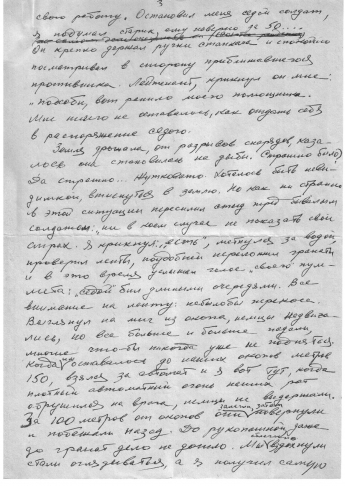 3
свою работу, Остановил меня седой солдат,
я подумал старик, ему наверно за 50....
Он крепко держал ручки станкача и спокойно
посматривал в сторону приближавшегося
противника. Лейтенант, крикнул он мне:
"пособи, вот ранило моего помощника.
Мне ничего не оставалось, как отдать себя
в распоряжение седого.
Земля дрожала, от разрывов снарядов, каза-
лось она становилась на дыбы. Страшно было?
Да страшно... Жутковато. Хотелось быть неви-
димкой, втиснуться в землю. Но как ни странно
в этой ситуации пересилил стыд перед бывалым
солдатом, ни в коем случае не показать свой
страх. Я крикнул: "есть", метнулся за водой
проверил ленты, поудобней переложил гранаты
и в это время услышал голос "своего" пуле-
мета: седой бил длинными очередями. Все
внимание на ленту: не было бы перекоса.
Взглянул на миг из окопа, немцы надвига-
лись, но все больше и больше падали,
многие чтобы никогда уже не подняться.
Когда им оставалось до наших окопов метров
150, взялся за автомат и я вот тут, когда
плотный автоматный огонь наших рот
обрушился на врага, немцы не выдержали.
За 100 метров от окопов они повернули
и побежали назад. До рукопашной, даже
до гранат дело не дошло. Мы вздохнули
стали оглядываться, а я получил самую